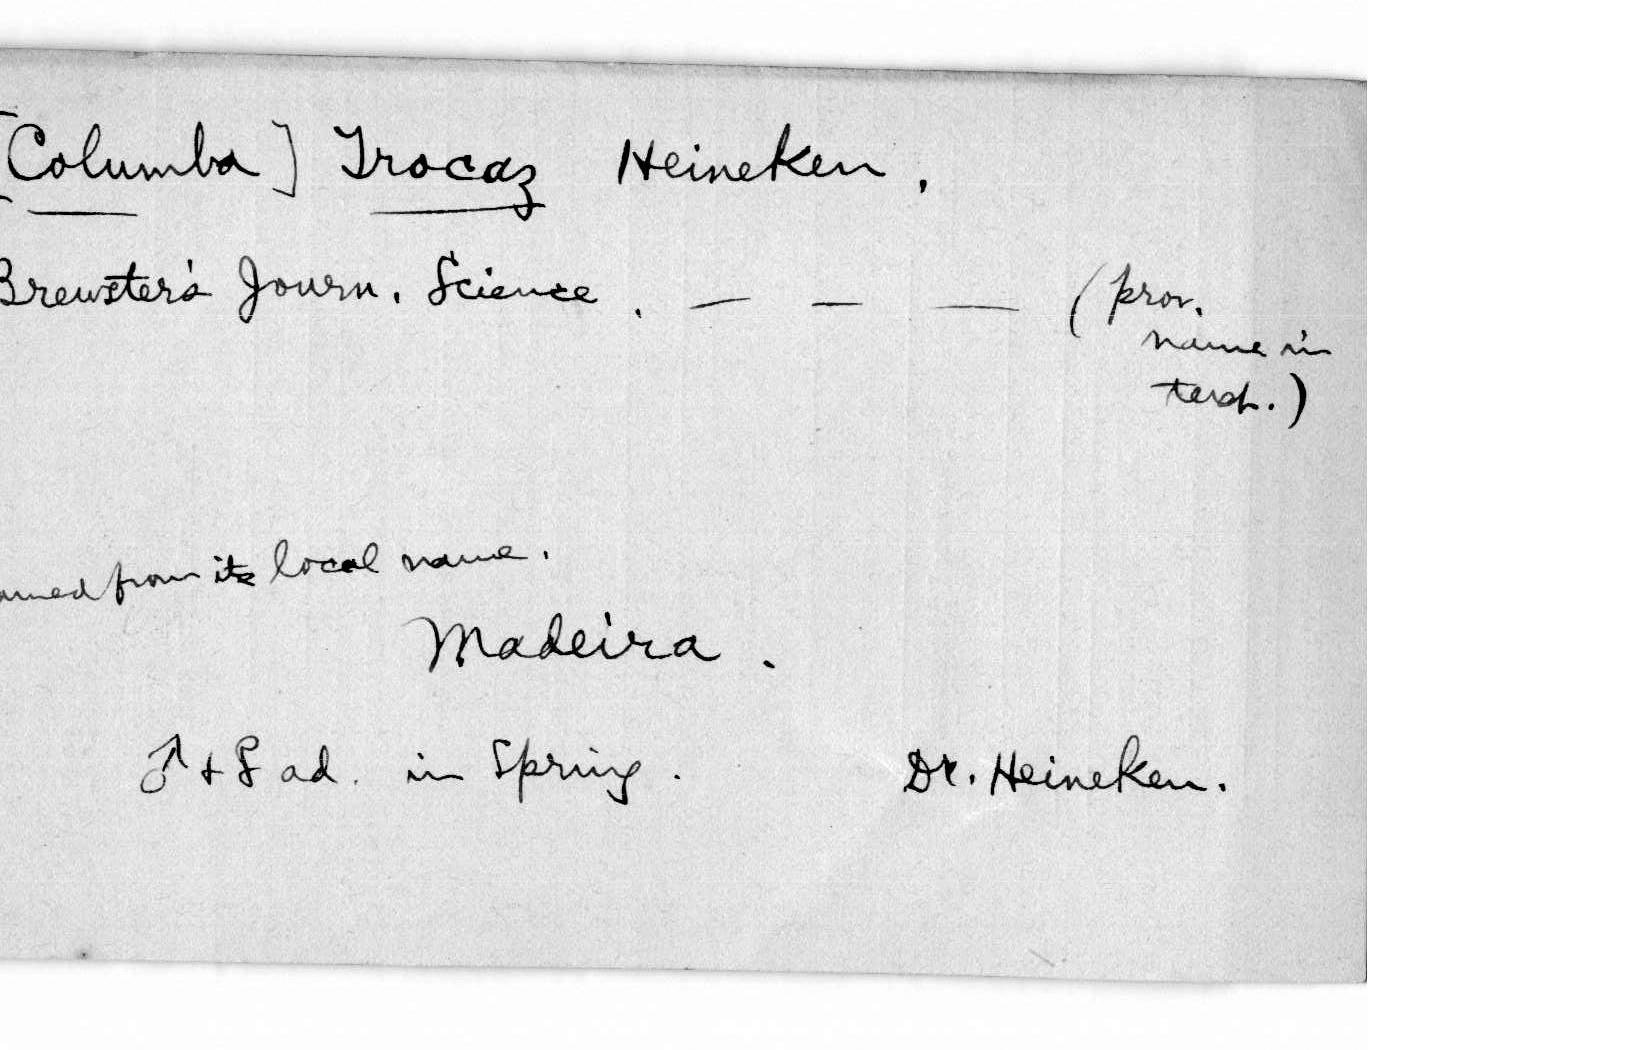 [Columba] Trocaz Heineken.
Brewster's Journ. Science. — — — (prov.
name in
text.)
named from its local name.
Madeira.
♂ + ♀ ad. in Spring. Dr. Heineken.